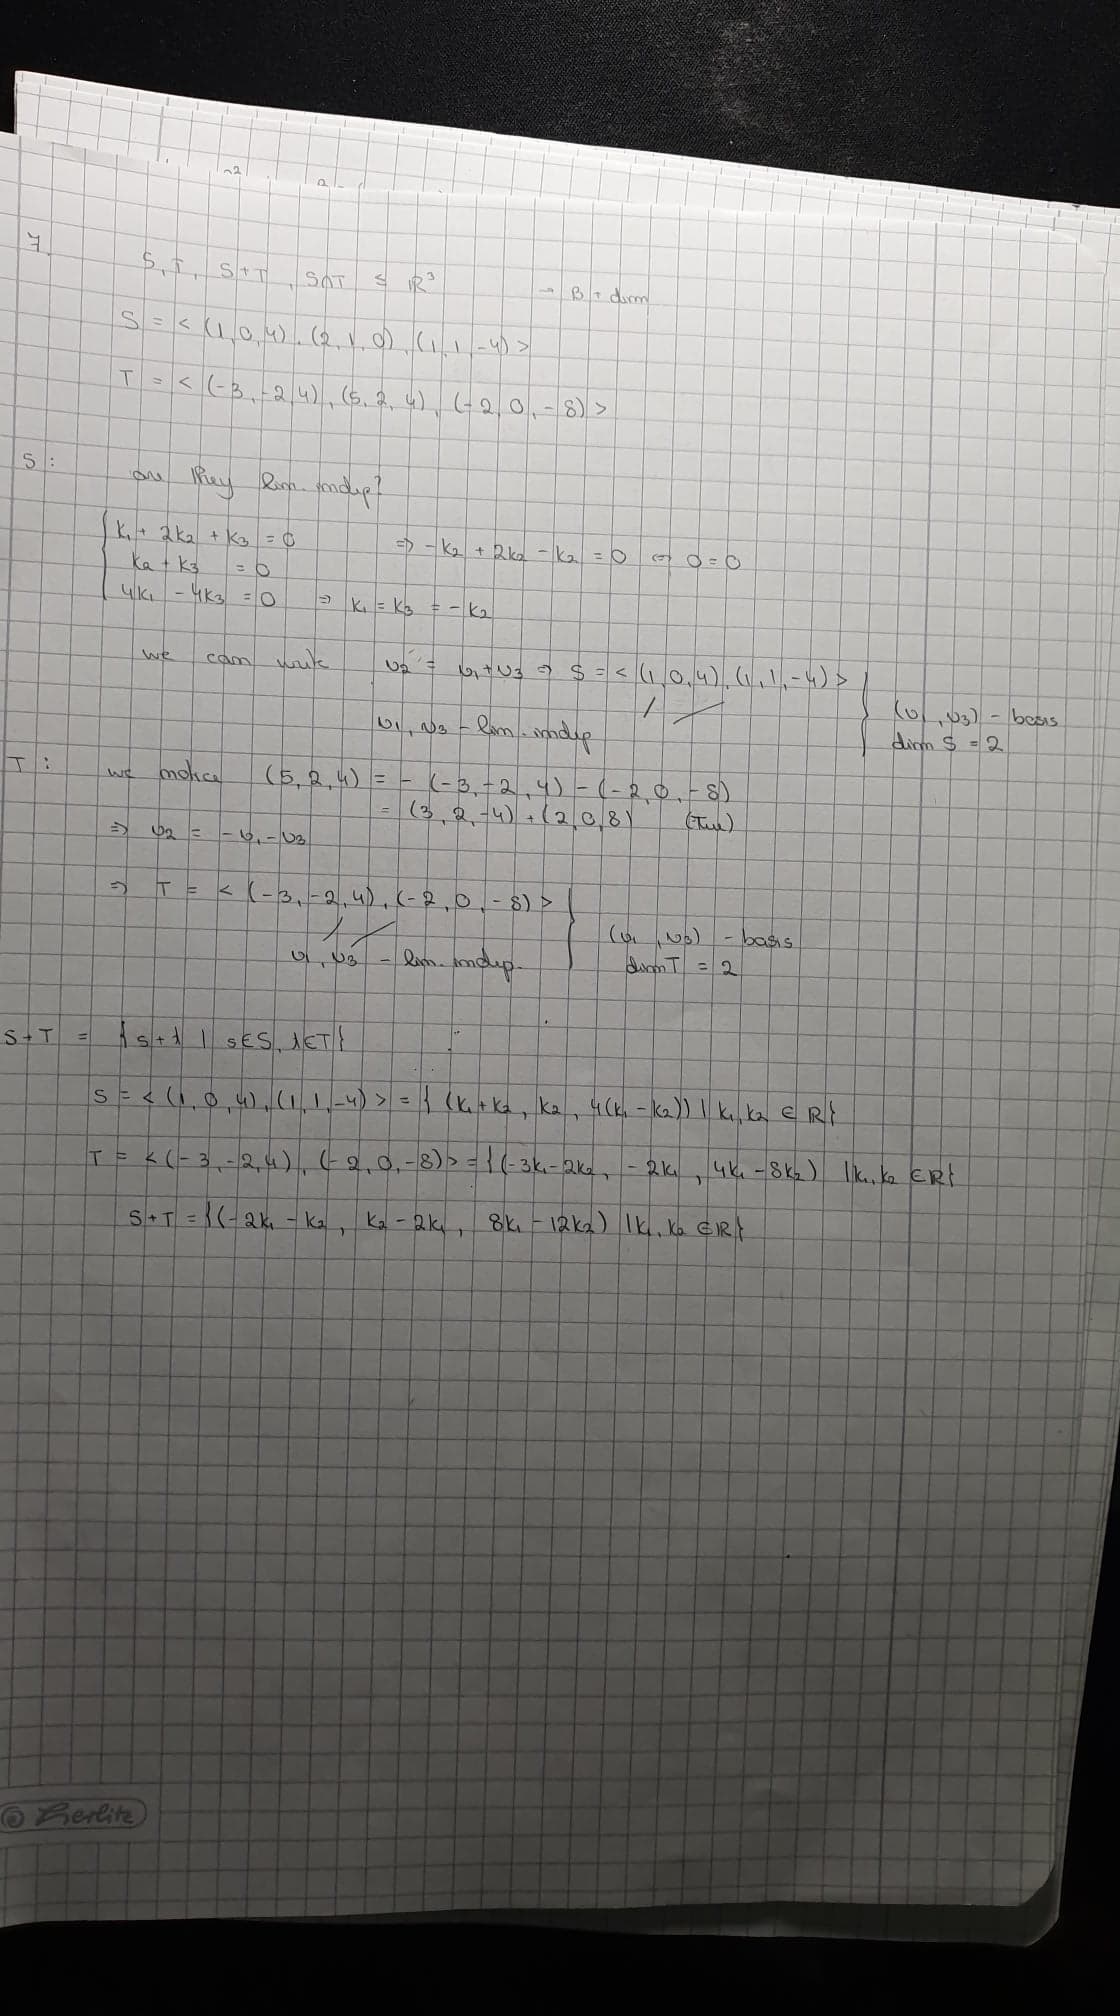 7.
S, T, S+T, S∩T ≤ R³ → B + dim
S = < (1,0,4), (2,1,0), (1,1,-4) >
T = < (-3,-2,4), (5,2,4), (-2,0,-8) >
S: are they lin. indep?
k₁ + 2k₂ + k₃ = 0 => -k₂ + 2k₂ - k₂ = 0 <=> 0 = 0
k₂ + k₃ = 0
4k₁ - 4k₃ = 0 => k₁ = k₃ = -k₂
we can write v₂ = v₁+v₃ => S = < (1,0,4), (1,1,-4) >
v₁, v₃ - lin. indep
(v₁, v₃) - basis
dim S = 2
T: we notice (5,2,4) = - (-3,-2,4) - (-2,0,-8)
= (3,2,-4) + (2,0,8) (True)
=> v₂ = -v₁-v₃
=> T = < (-3,-2,4), (-2,0,-8) >
v₁, v₃ - lin. indep.
(v₁, v₃) - basis
dim T = 2
S+T = {s+t | s∈S, t∈T}
S = < (1,0,4), (1,1,-4) > = { (k₁+k₂, k₂, 4(k₁-k₂)) | k₁,k₂ ∈ R}
T = < (-3,-2,4), (-2,0,-8) > = {(-3k₁-2k₂, -2k₁, 4k₁-8k₂) | k₁,k₂ ∈ R}
S+T = {(-2k₁-k₂, k₂-2k₁, 8k₁-12k₂) | k₁,k₂ ∈ R}
Herlitz